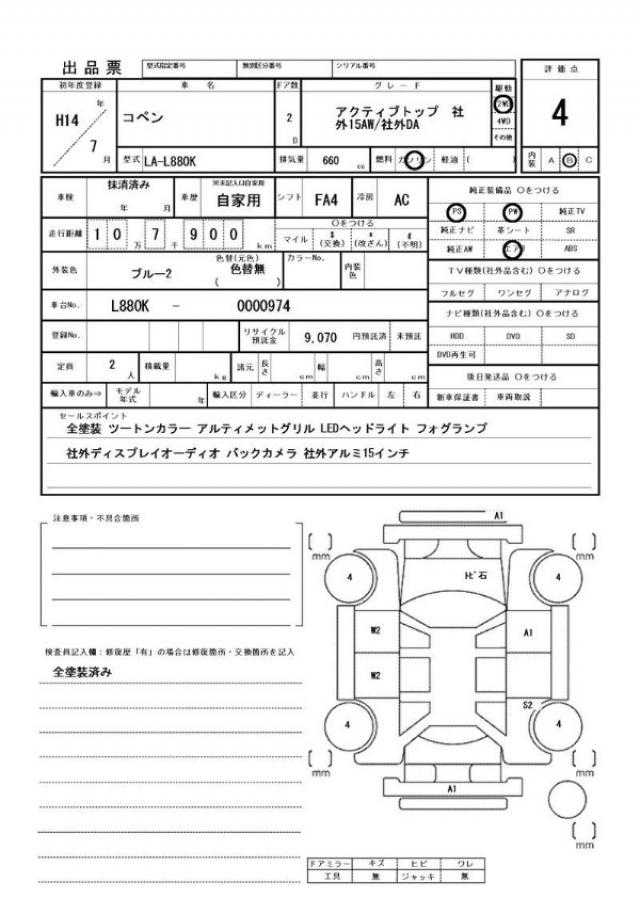 出品票 型式指定番号 類別区分番号 シリアル番号
初年度登録 車名 ドア数 グレード 駆動 評価点
H14 年 7 月
コペン
2 D
アクティブトップ 社
外15AW/社外DA
2WD
4WD
その他
4
型式 LA-L880K 排気量 660 cc 燃料 ガソリン 軽油 ( ) 内装 A B C
車検 抹消済み 年 月 車歴 ※未記入は自家用 自家用 シフト FA4 冷房 AC
走行距離 10万7千900km ○をつける
マイル $(交換) *(改ざん) #(不明)
外装色 ブルー2 色替(元色) 色替無 ( ) カラーNo. 内装色
車台No. L880K - 0000974
登録No. リサイクル預託金 9,070 円預託済 未預託
定員 2 人 積載量 kg 諸元 長さ cm 幅 cm 高さ cm
輸入車のみ⇒ モデル年式 年 輸入区分 ディーラー 並行 ハンドル 左 右
純正装備品 ○をつける
PS PW 純正TV
純正ナビ 革シート SR
純正AW エアB ABS
TV種類(社外品含む) ○をつける
フルセグ ワンセグ アナログ
ナビ種類(社外品含む) ○をつける
HDD DVD SD
DVD再生可
後日発送品 ○をつける
新車保証書 車両取説
セールスポイント
全塗装 ツートンカラー アルティメットグリル LEDヘッドライト フォグランプ
社外ディスプレイオーディオ バックカメラ 社外アルミ15インチ
注意事項・不具合箇所
検査員記入欄：修復歴「有」の場合は修復箇所・交換箇所を記入
全塗装済み
A1
[ ] mm [ ] mm
4 トビ石 4
W2 A1
W2
S2
4 4
[ ] mm [ ] mm
A1
[ ] mm
ドアミラー キズ ヒビ ワレ
工具 無 ジャッキ 無